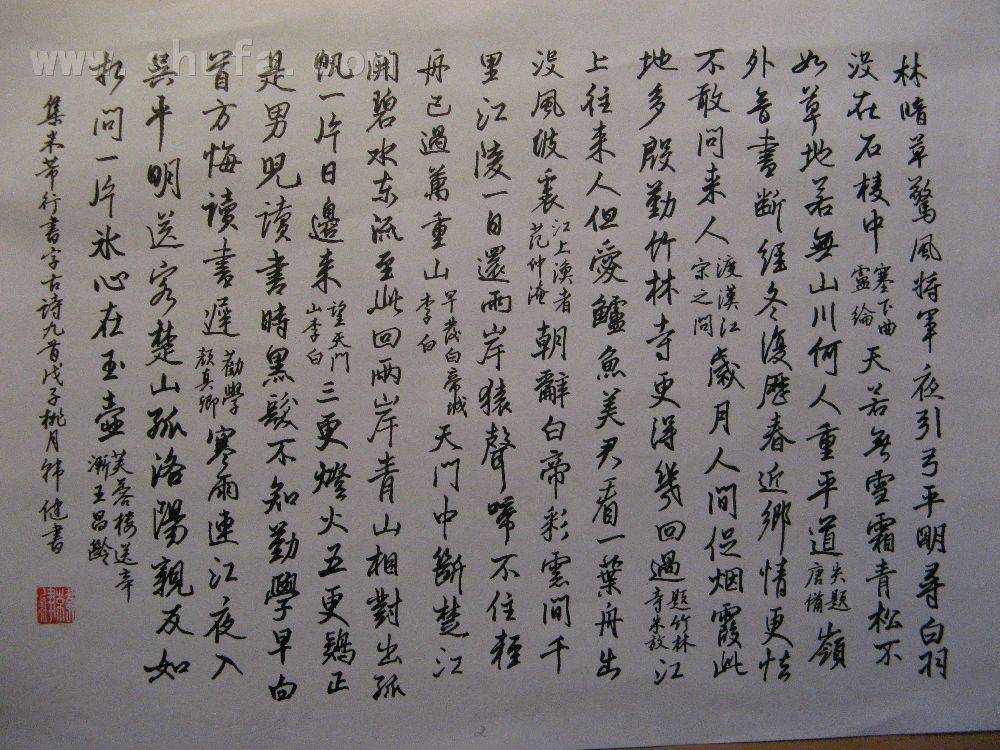 www.shufa.com
林暗草驚風将軍夜引弓平明尋白羽
没在石棱中塞下曲盧綸天若無雪霜青松不
如草地若無山川何人重平道失題唐備嶺
外音書断經冬復歷春近鄉情更怯
不敢問来人渡漢江宋之問歲月人間促烟霞此
地多殷勤竹林寺更得幾回過題竹林寺朱放江
上往来人但愛鱸魚美君看一葉舟出
没風波裏江上漁者范仲淹朝辭白帝彩雲間千
里江陵一日還兩岸猿聲啼不住輕
舟已過萬重山早發白帝城李白天門中斷楚江
開碧水東流至此回兩岸青山相對出孤
帆一片日邊来望天門山李白三更燈火五更鷄正
是男兒讀書時黑髮不知勤學早白
首方悔讀書遲勸學顏真卿寒雨連江夜入
吳平明送客楚山孤洛陽親友如
相問一片冰心在玉壺芙蓉樓送辛漸王昌齡
集米芾行書字古詩九首戊子桃月韩健書
2